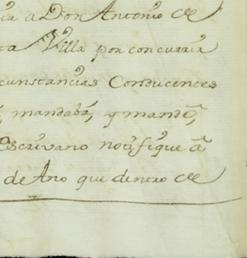 a Don Antonio de
ta Villa por concurrir
cunstancias Conducentes
mandaba, y mandó,
escrivano notifique a
de Ano que dentro de